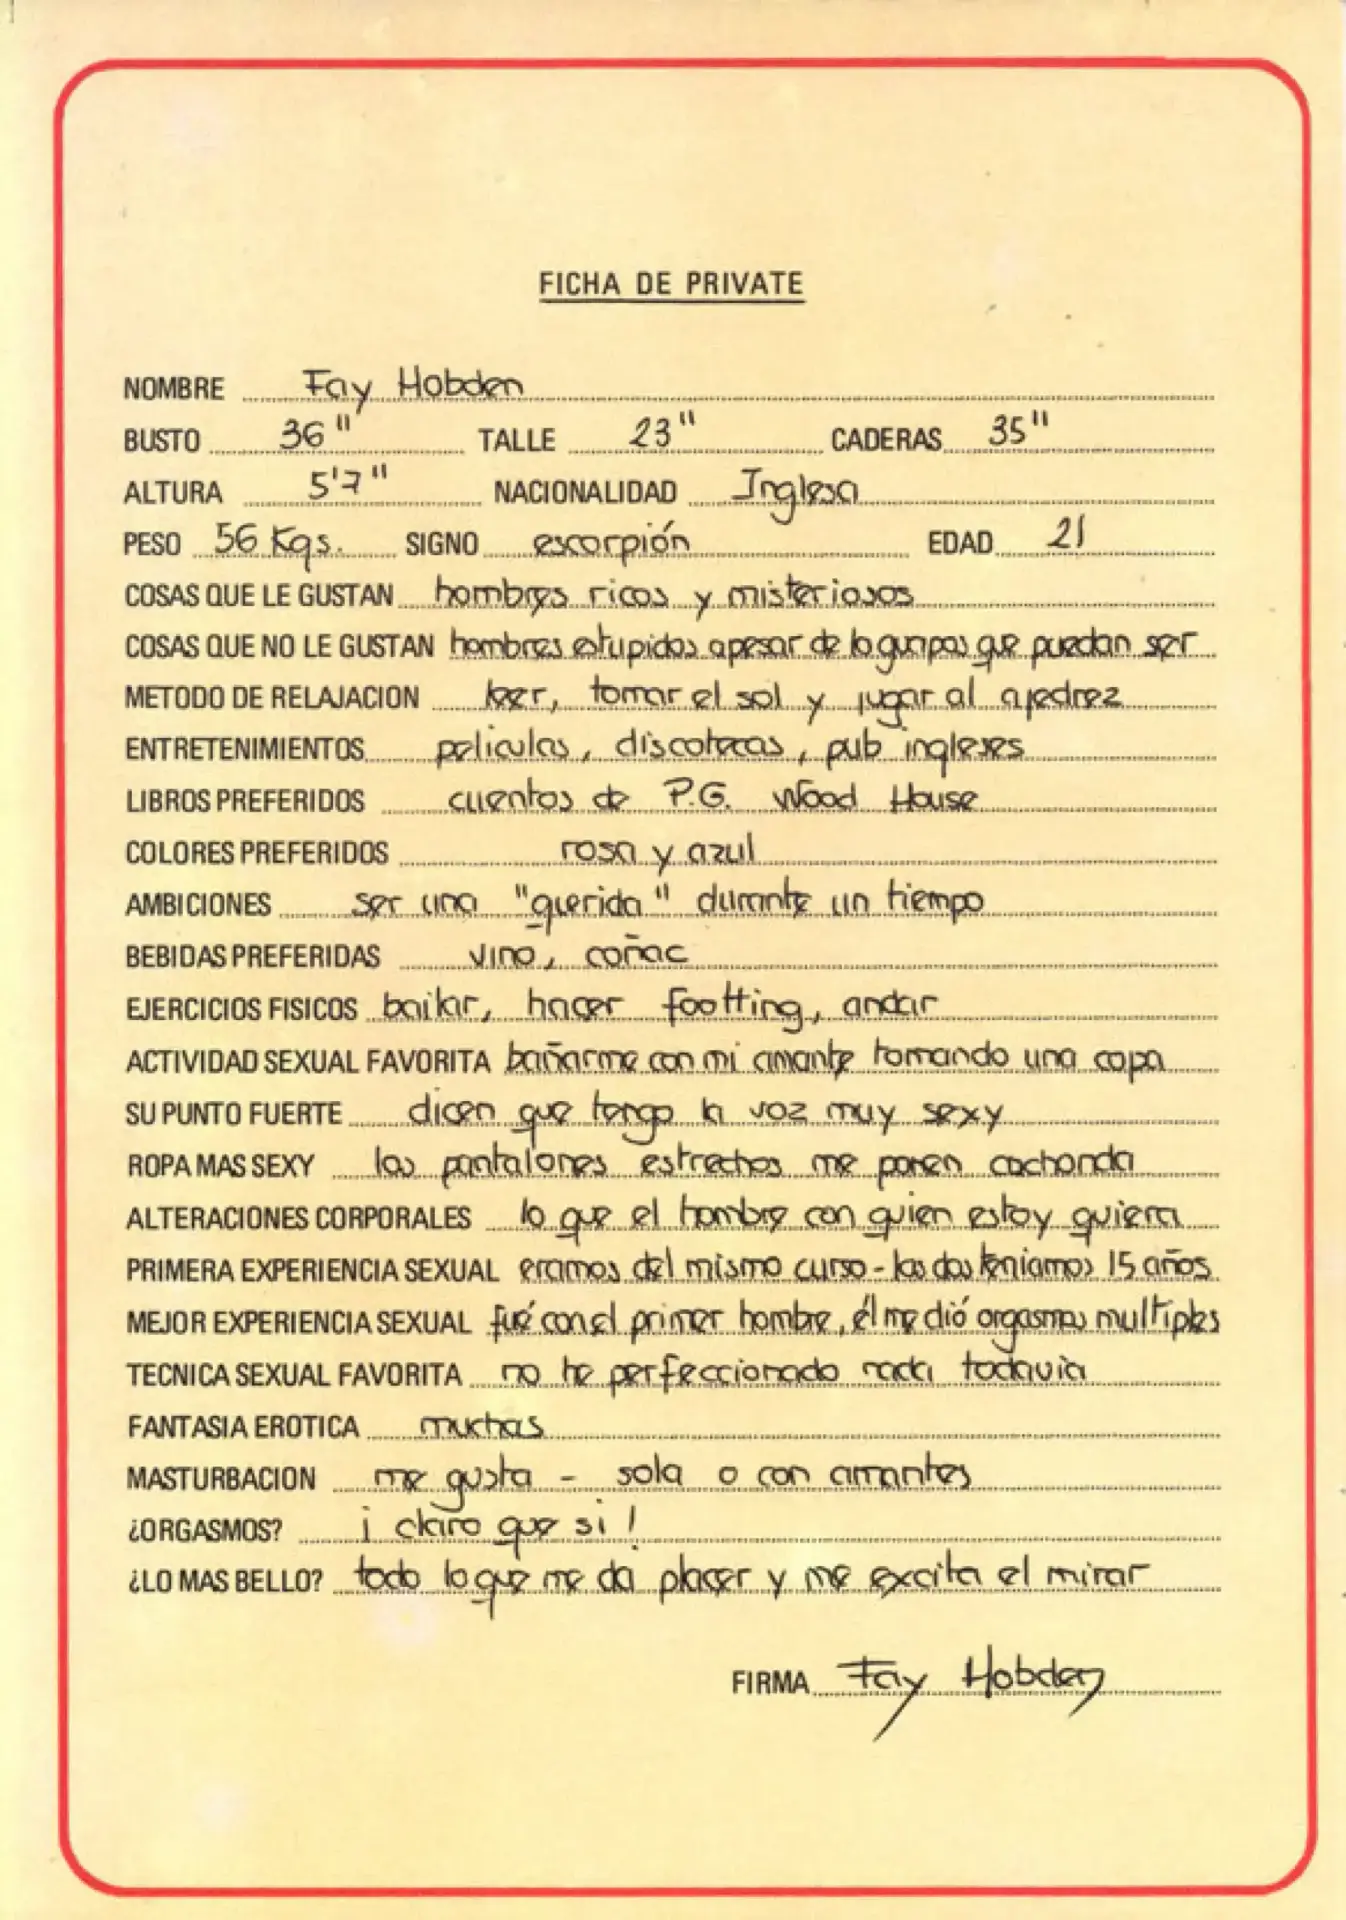 FICHA DE PRIVATE
NOMBRE Fay Hobden
BUSTO 36" TALLE 23" CADERAS 35"
ALTURA 5'7" NACIONALIDAD Inglesa
PESO 56 Kgs. SIGNO escorpión EDAD 21
COSAS QUE LE GUSTAN hombres ricos y misteriosos
COSAS QUE NO LE GUSTAN hombres estupidos apesar de lo guapos que puedan ser
METODO DE RELAJACION leer, tomar el sol y jugar al ajedrez
ENTRETENIMIENTOS peliculas, discotecas, pub ingleses
LIBROS PREFERIDOS cuentos de P.G. Wood House
COLORES PREFERIDOS rosa y azul
AMBICIONES ser una "querida" durante un tiempo
BEBIDAS PREFERIDAS vino, coñac
EJERCICIOS FISICOS bailar, hacer footting, andar
ACTIVIDAD SEXUAL FAVORITA bañarme con mi amante tomando una copa
SU PUNTO FUERTE dicen que tengo la voz muy sexy
ROPA MAS SEXY los pantalones estrechos me ponen cachonda
ALTERACIONES CORPORALES lo que el hombre con quien estoy quiera
TECNICA SEXUAL FAVORITA no he perfeccionado nada todavia
FANTASIA EROTICA muchas
MASTURBACION me gusta - sola o con amantes
¿ORGASMOS? ¡claro que si!
¿LO MAS BELLO? todo lo que me da placer y me excita el mirar
FIRMA Fay Hobden